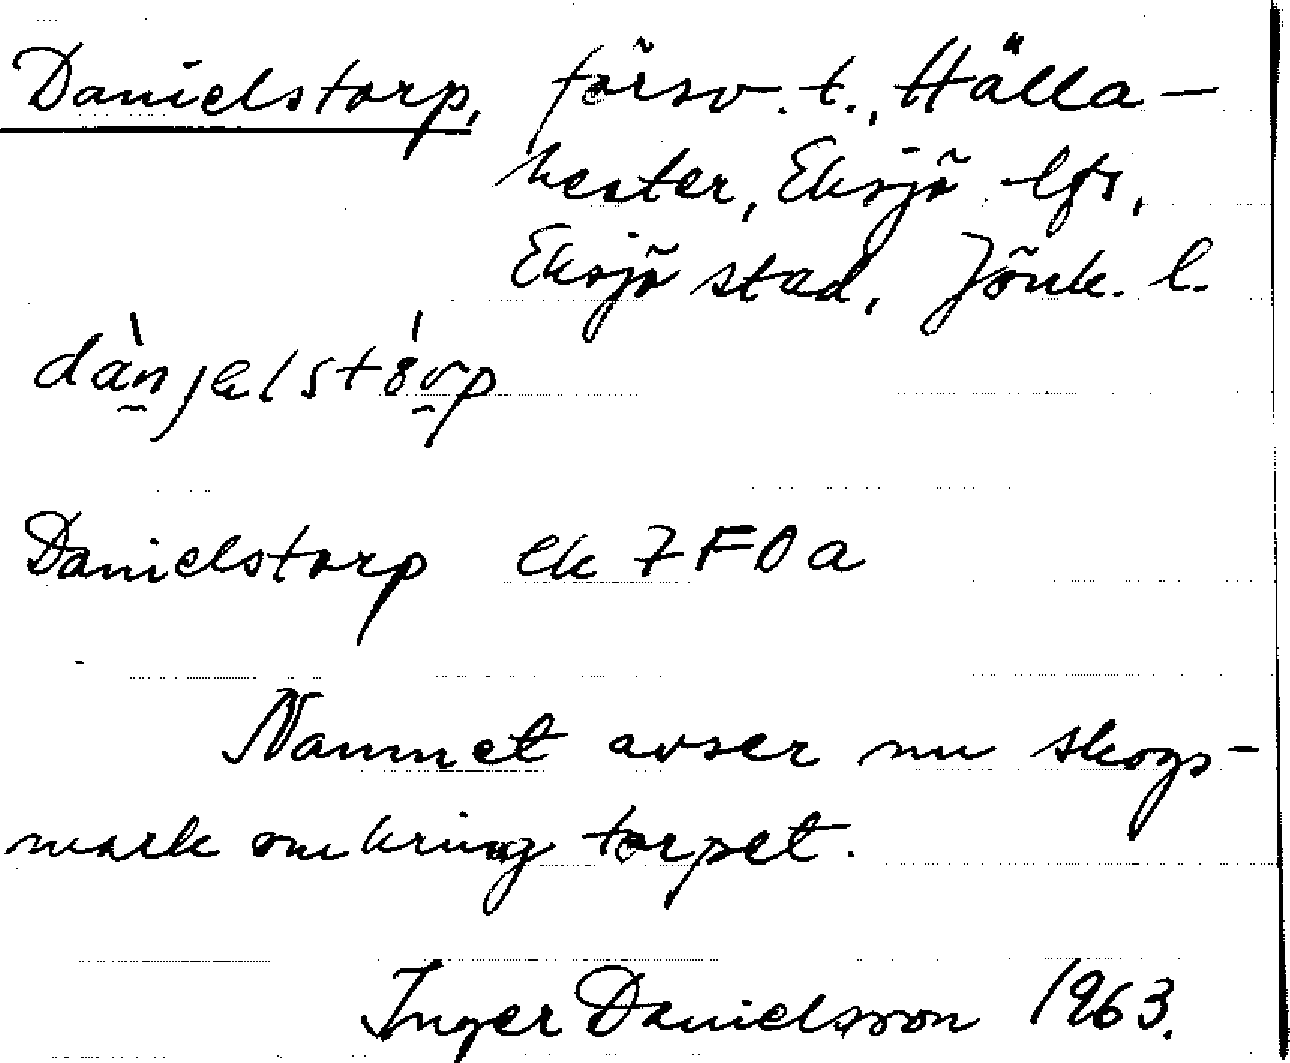 Danielstorp, försv. t., Hälla-
hester, Eksjö lfs,
Eksjö stad, Jönk. l.
dànjəlstórp
Danielstorp ek 7F0a
Namnet avser nu skogs-
mark omkring torpet.
Inger Danielsson 1963.